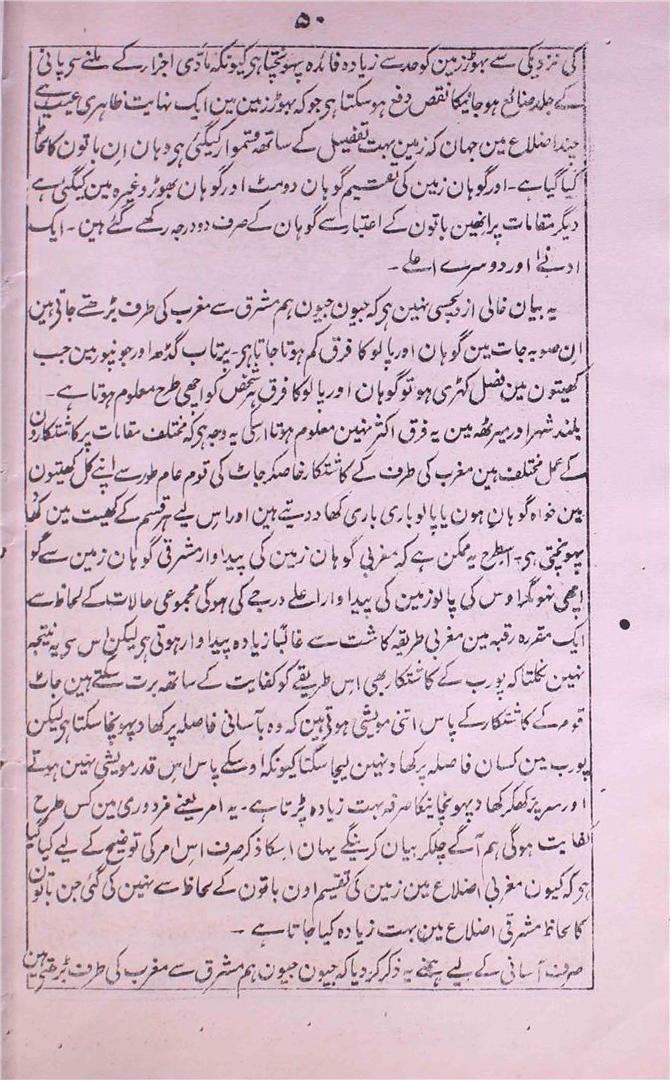 ۵۰
کی نزدیکی سے بھوڑ زمین کو حد سے زیادہ فائدہ پہونچتا ہی کیونکہ مادّی اجزار کے ملنے سے پانی
کے جلد ضائع ہو جانیکا نقص دفع ہو سکتا ہی جو کہ بھوڑ زمین مین ایک نہایت ظاہری عیب ہے
چند اضلاع مین جہان کہ زمین بہت تفصیل کے ساتھ قسموار کیگئی ہی وہان اِن باتون کا لحاظ
کیا گیا ہے ۔ اور گوہان زمین کی تقسیم گوہان دومٹ اور گوہان بھوڑ وغیرہ مین کیگئی ہے
دیگر مقامات پر انھین باتون کے اعتبار سے گوہان کے صرف دو درجہ رکھے گئے ہین ۔ ایک
ادنےٰ اور دوسرے اعلے ۔
یہ بیان خالی از دلچسپی نہین ہی کہ جیون جیون ہم مشرق سے مغرب کی طرف بڑھتے جاتی ہین
اِن صوبہ جات مین گوہان اور پالو کا فرق کم ہوتا جاتا ہی ۔ پرتاب گڈھ اور جونپور مین جب
کھیتون مین فصل کھڑی ہو تو گوہان اور پالو کا فرق ہر شخص کو اچھی طرح معلوم ہوتا ہے ۔
بلند شہر اور میرٹھ مین یہ فرق اکثر نہین معلوم ہوتا اسکی یہ وجہ ہی کہ مختلف مقامات پر کاشتکارون
کے عمل مختلف ہین مغرب کی طرف کے کاشتکار خاصکر جاٹ کی قوم عام طور سے اپنے کل کھیتون
مین خواہ گوہان ہون یا پالو باری باری کھاد دیتے ہین اور اس لیے ہر قسم کے کھیت مین کھاد
پہونچتی ہی ۔ اسطرح یہ ممکن ہے کہ مغربی گوہان زمین کی پیداوار مشرقی گوہان زمین سے گو
اچھی نہو مگر اوس کی پالو زمین کی پیداوار اعلے درجے کی ہوگی مجموعی حالات کے لحاظ سے
ایک مقررہ رقبہ مین مغربی طریقہ کاشت سے غالبًا زیادہ پیداوار ہوتی ہی لیکن اس سی یہ نتیجہ
نہین نکلتا کہ پورب کے کاشتکار بھی اِس طریقے کو کفایت کے ساتھ برت سکتے ہین جاٹ
قوم کے کاشتکار کے پاس اتنی مویشی ہوتی ہین کہ وہ بآسانی فاصلہ پر کھاد پہونچا سکتا ہی لیکن
پورب مین کسان فاصلہ پر کھاد نہین لیجا سکتا کیونکہ اوسکے پاس اس قدر مویشی نہین ہوتے
اور سر پر رکھکر کھاد پہونچانیکا صرفہ بہت زیادہ پڑتا ہے ۔ یہ امر یعنے مزدوری مین کس طرح
کفایت ہوگی ہم آگے چلکر بیان کرینگے یہان اسکا ذکر صرف اس امر کی توضیح کے لیے کیا گیا
ہی کہ کیون مغربی اضلاع مین زمین کی تقسیم اون باتون کے لحاظ سے نہین کی گئی جن باتون
کا لحاظ مشرقی اضلاع مین بہت زیادہ کیا جاتا ہے ۔
صرف آسانی کے لیے ہمنے یہ ذکر کر دیا کہ جیون جیون ہم مشرق سے مغرب کی طرف بڑھتے ہین